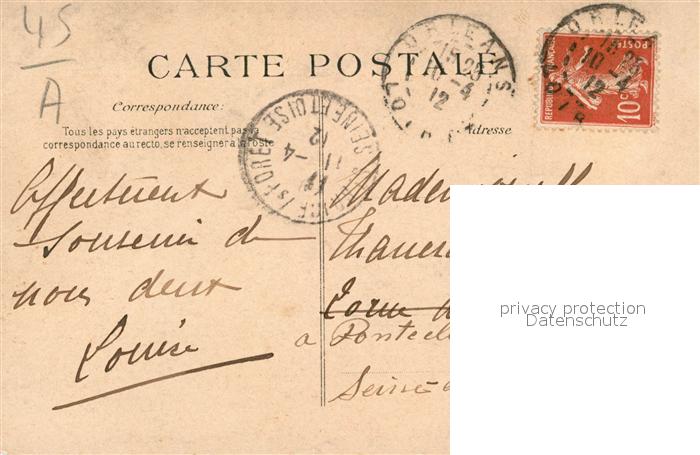 45
A
CARTE POSTALE
Correspondance:
Tous les pays étrangers n'acceptent pas la
correspondance au recto, se renseigner à la poste
Adresse
ORLEANS
15 25
10-4
12
LOIRET
REPUBLIQUE FRANÇAISE
POSTES
10c
FORET
SEINE ET OISE
11-4
12
Affectueux
Souvenir de
nous deux
Louise
Mademoiselle
à
Seine-
privacy protection
Datenschutz